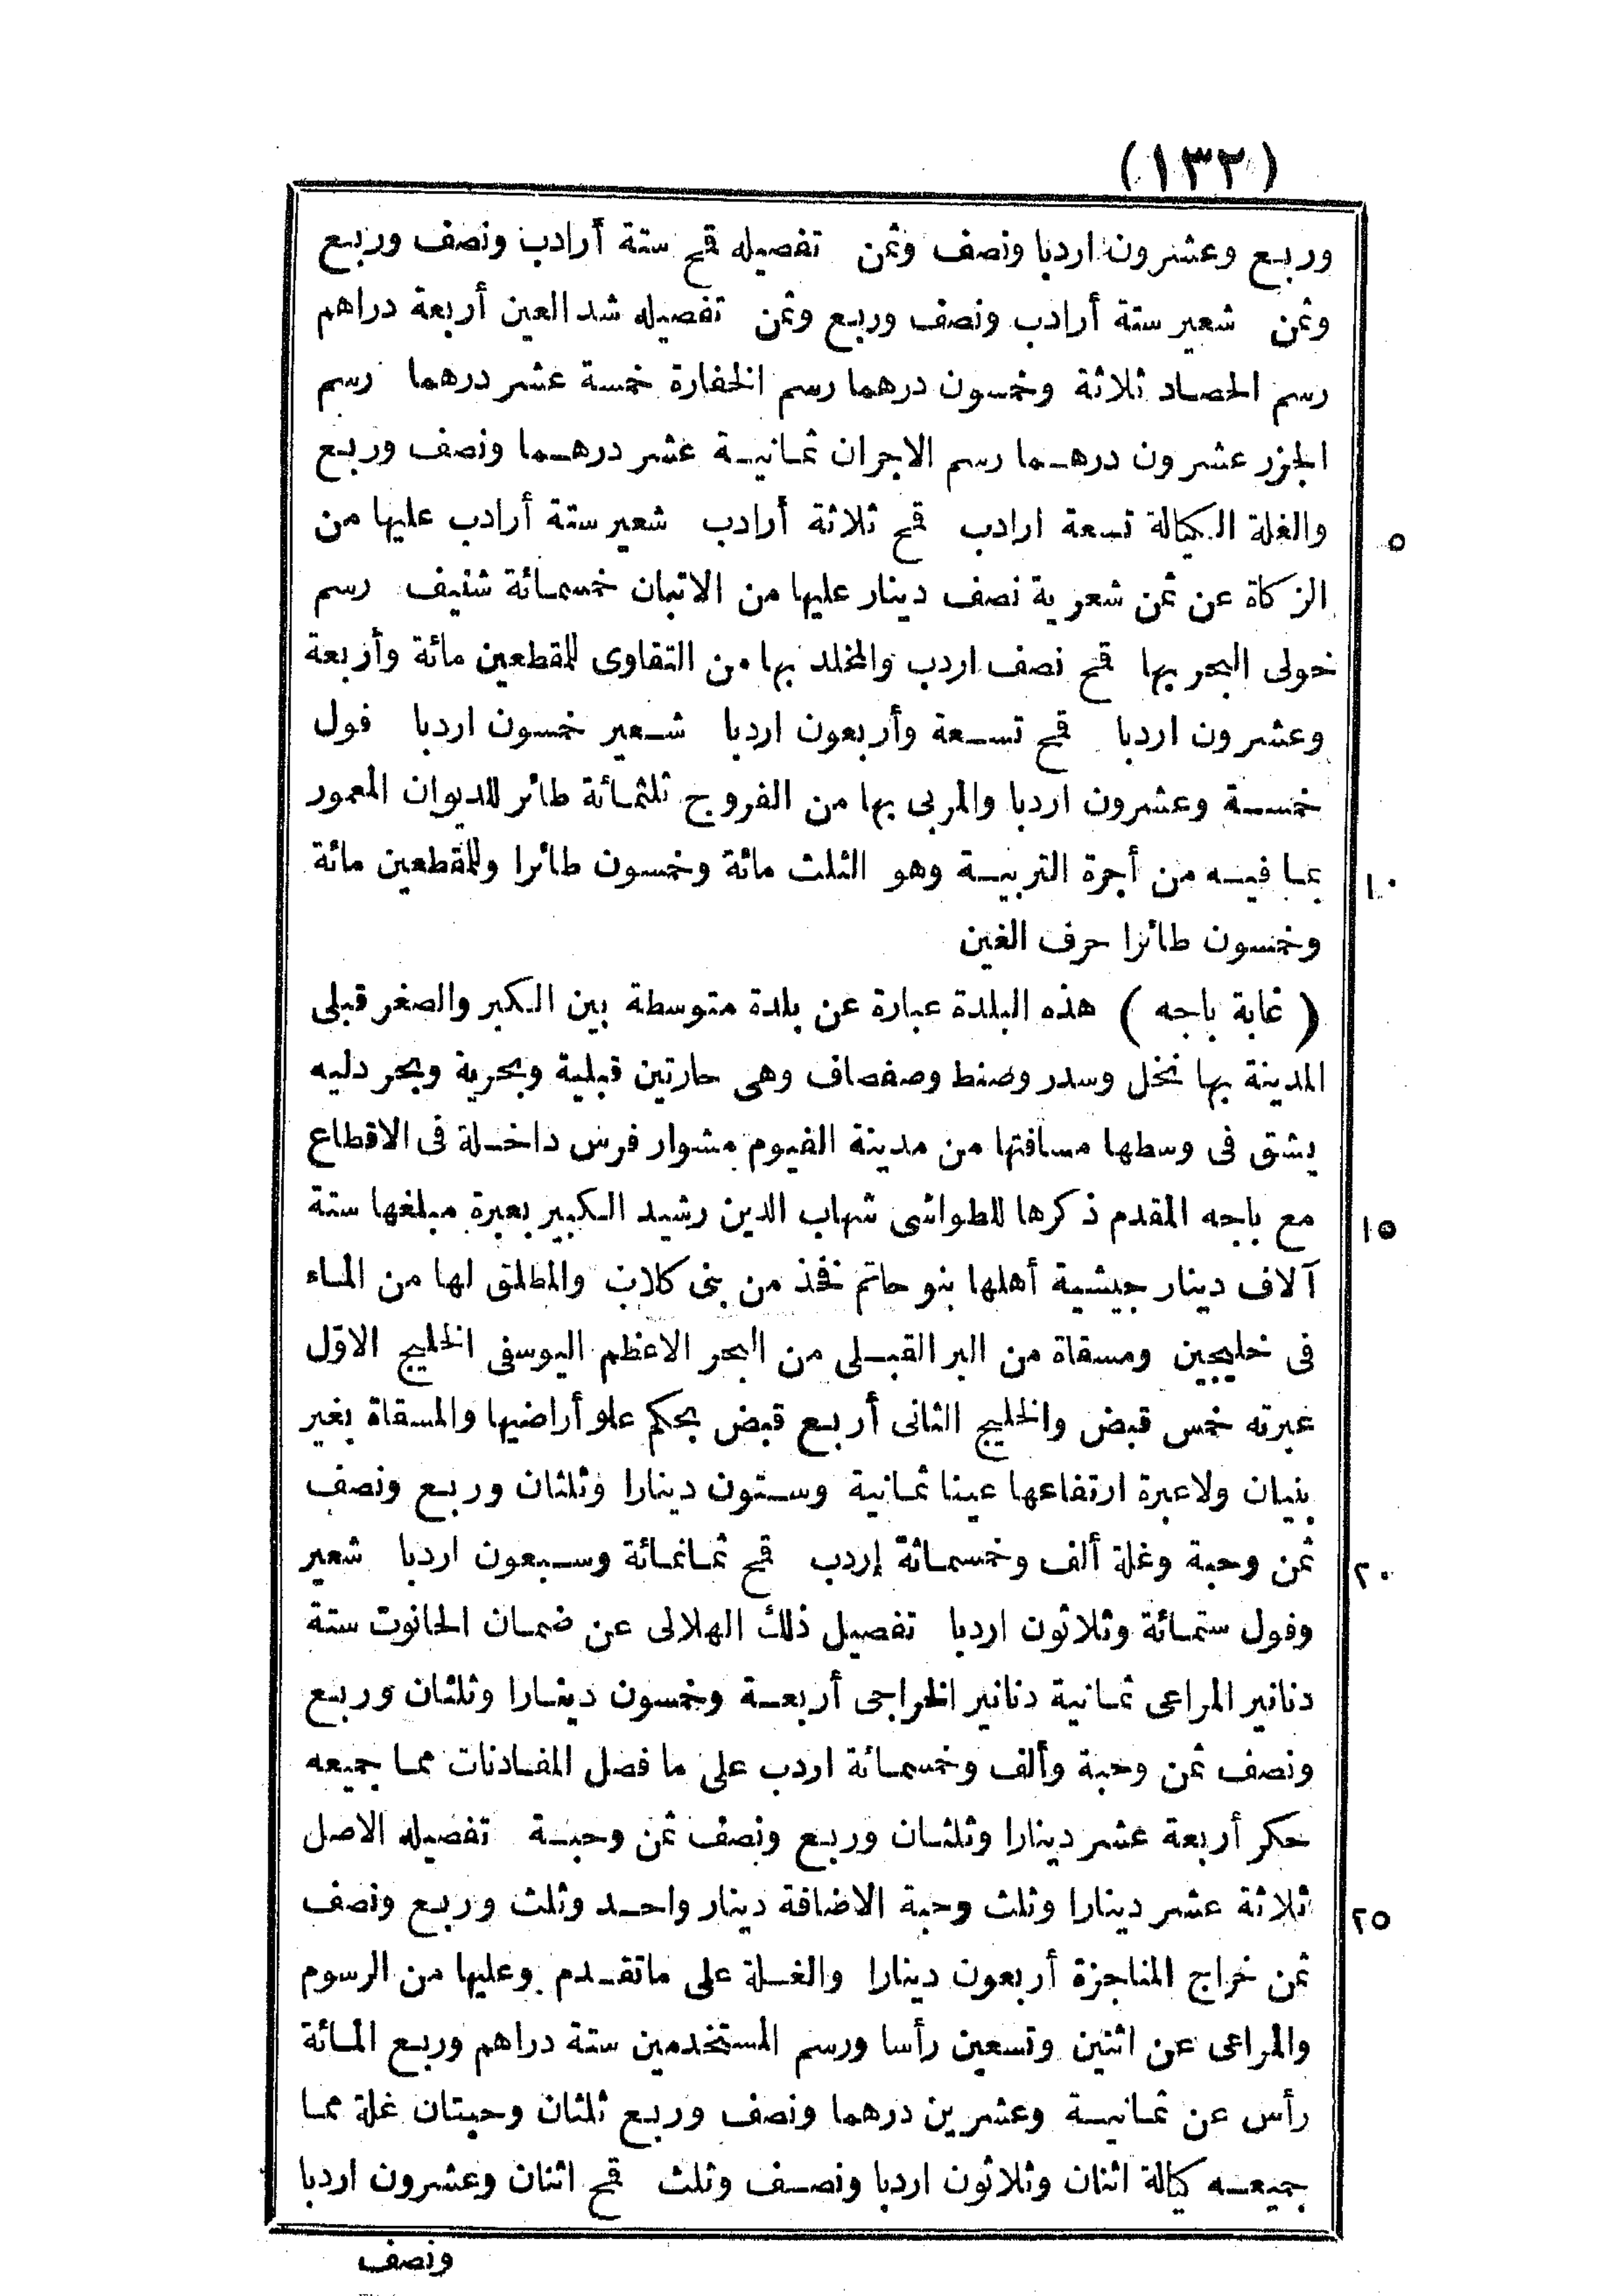 (١٣٢)
وربع وعشرون اردبا ونصف وثمن تفصيله قمح ستة أرادب ونصف وربع
وثمن شعير ستة أرادب ونصف وربع وثمن تفصيله شد العين أربعة دراهم
رسم الحصاد ثلاثة وخمسون درهما رسم الخفارة خمسة عشر درهما رسم
الجزر عشرون درهما رسم الاجران ثمانية عشر درهما ونصف وربع
والغلة الكيالة تسعة ارادب قمح ثلاثة أرادب شعير ستة أرادب عليها من
٥
الزكاة عن ثمن شعرية نصف دينار عليها من الاتبان خمسمائة شنيف رسم
خولى البحر بها قمح نصف اردب والمخلد بها من التقاوى للمقطعين مائة وأربعة
وعشرون اردبا قمح تسعة وأربعون اردبا شعير خمسون اردبا فول
خمسة وعشرون اردبا والمربى بها من الفروج ثلثمائة طائر للديوان المعمور
بما فيه من أجرة التربية وهو الثلث مائة وخمسون طائرا وللمقطعين مائة
١٠
وخمسون طائرا حرف الغين
(غابة باجه) هذه البلدة عبارة عن بلدة متوسطة بين الكبر والصغر قبلى
المدينة بها نخل وسدر وصنط وصفصاف وهى حارتين قبلية وبحرية وبحر دليه
يشق فى وسطها مسافتها من مدينة الفيوم مشوار فرس داخلة فى الاقطاع
مع باجه المقدم ذكرها للطواشى شهاب الدين رشيد الكبير بعبرة مبلغها ستة
١٥
آلاف دينار جيشية أهلها بنو حاتم فخذ من بنى كلاب والمطلق لها من الماء
فى خليجين ومسقاة من البر القبلى من البحر الاعظم اليوسفى الخليج الاوّل
عبرته خمس قبض والخليج الثانى أربع قبض بحكم علو أراضيها والمسقاة بغير
بنيان ولاعبرة ارتفاعها عينا ثمانية وستون دينارا وثلثان وربع ونصف
ثمن وحبة وغلة ألف وخمسمائة إردب قمح ثمانمائة وسبعون اردبا شعير
٢٠
وفول ستمائة وثلاثون اردبا تفصيل ذلك الهلالى عن ضمان الحانوت ستة
دنانير المراعى ثمانية دنانير الخراجى أربعة وخمسون دينارا وثلثان وربع
ونصف ثمن وحبة وألف وخمسمائة اردب على ما فصل المفادنات مما جميعه
حكر أربعة عشر دينارا وثلثان وربع ونصف ثمن وحبة تفصيله الاصل
ثلاثة عشر دينارا وثلث وحبة الاضافة دينار واحد وثلث وربع ونصف
٢٥
ثمن خراج المناجزة أربعون دينارا والغلة على ماتقدم وعليها من الرسوم
والمراعى عن اثنين وتسعين رأسا ورسم المستخدمين ستة دراهم وربع المائة
رأس عن ثمانية وعشرين درهما ونصف وربع ثلثان وحبتان غلة مما
جميعه كيالة اثنان وثلاثون اردبا ونصف وثلث قمح اثنان وعشرون اردبا
ونصف